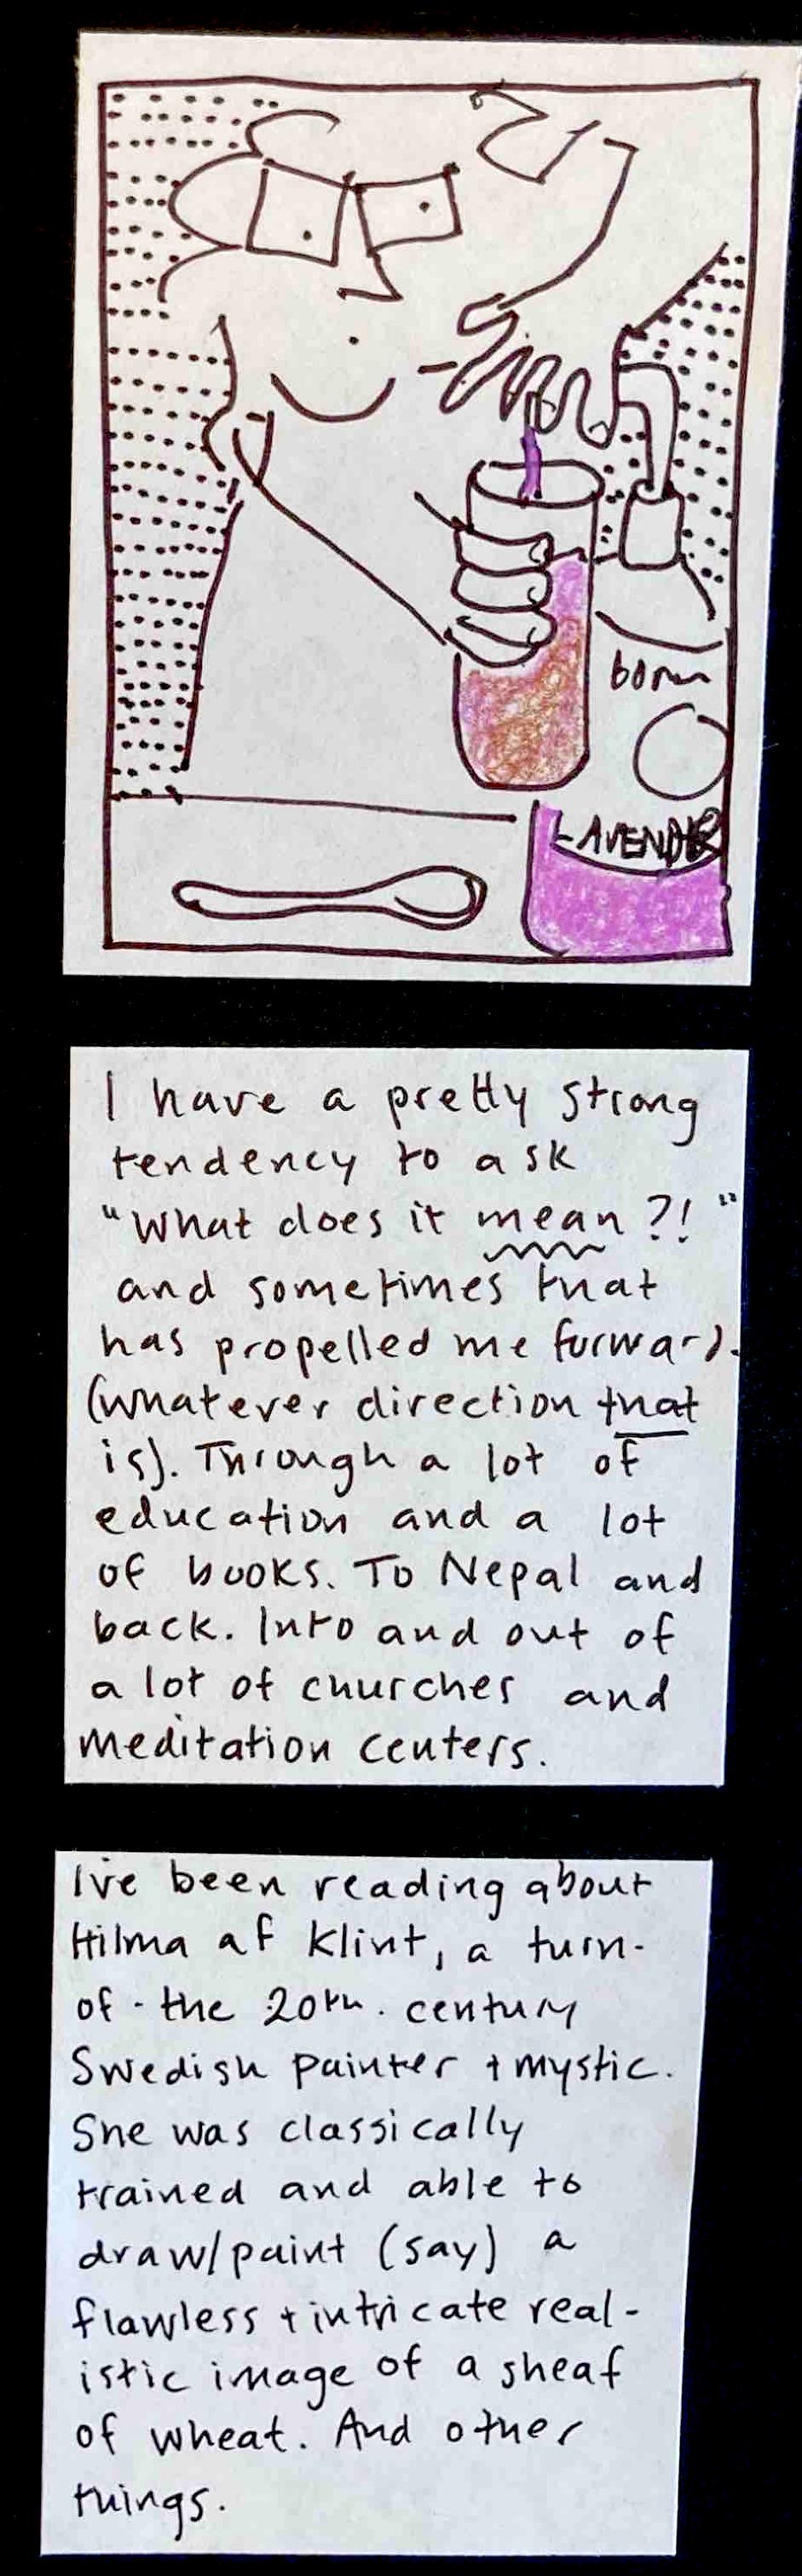 born
LAVENDER
I have a pretty strong
tendency to ask
"What does it mean?!"
and sometimes that
has propelled me forward.
(whatever direction that
is). Through a lot of
education and a lot
of books. To Nepal and
back. Into and out of
a lot of churches and
meditation centers.
I've been reading about
Hilma af Klint, a turn-
of-the 20th. century
Swedish painter + mystic.
She was classically
trained and able to
draw/paint (say) a
flawless + intricate real-
istic image of a sheaf
of wheat. And other
things.